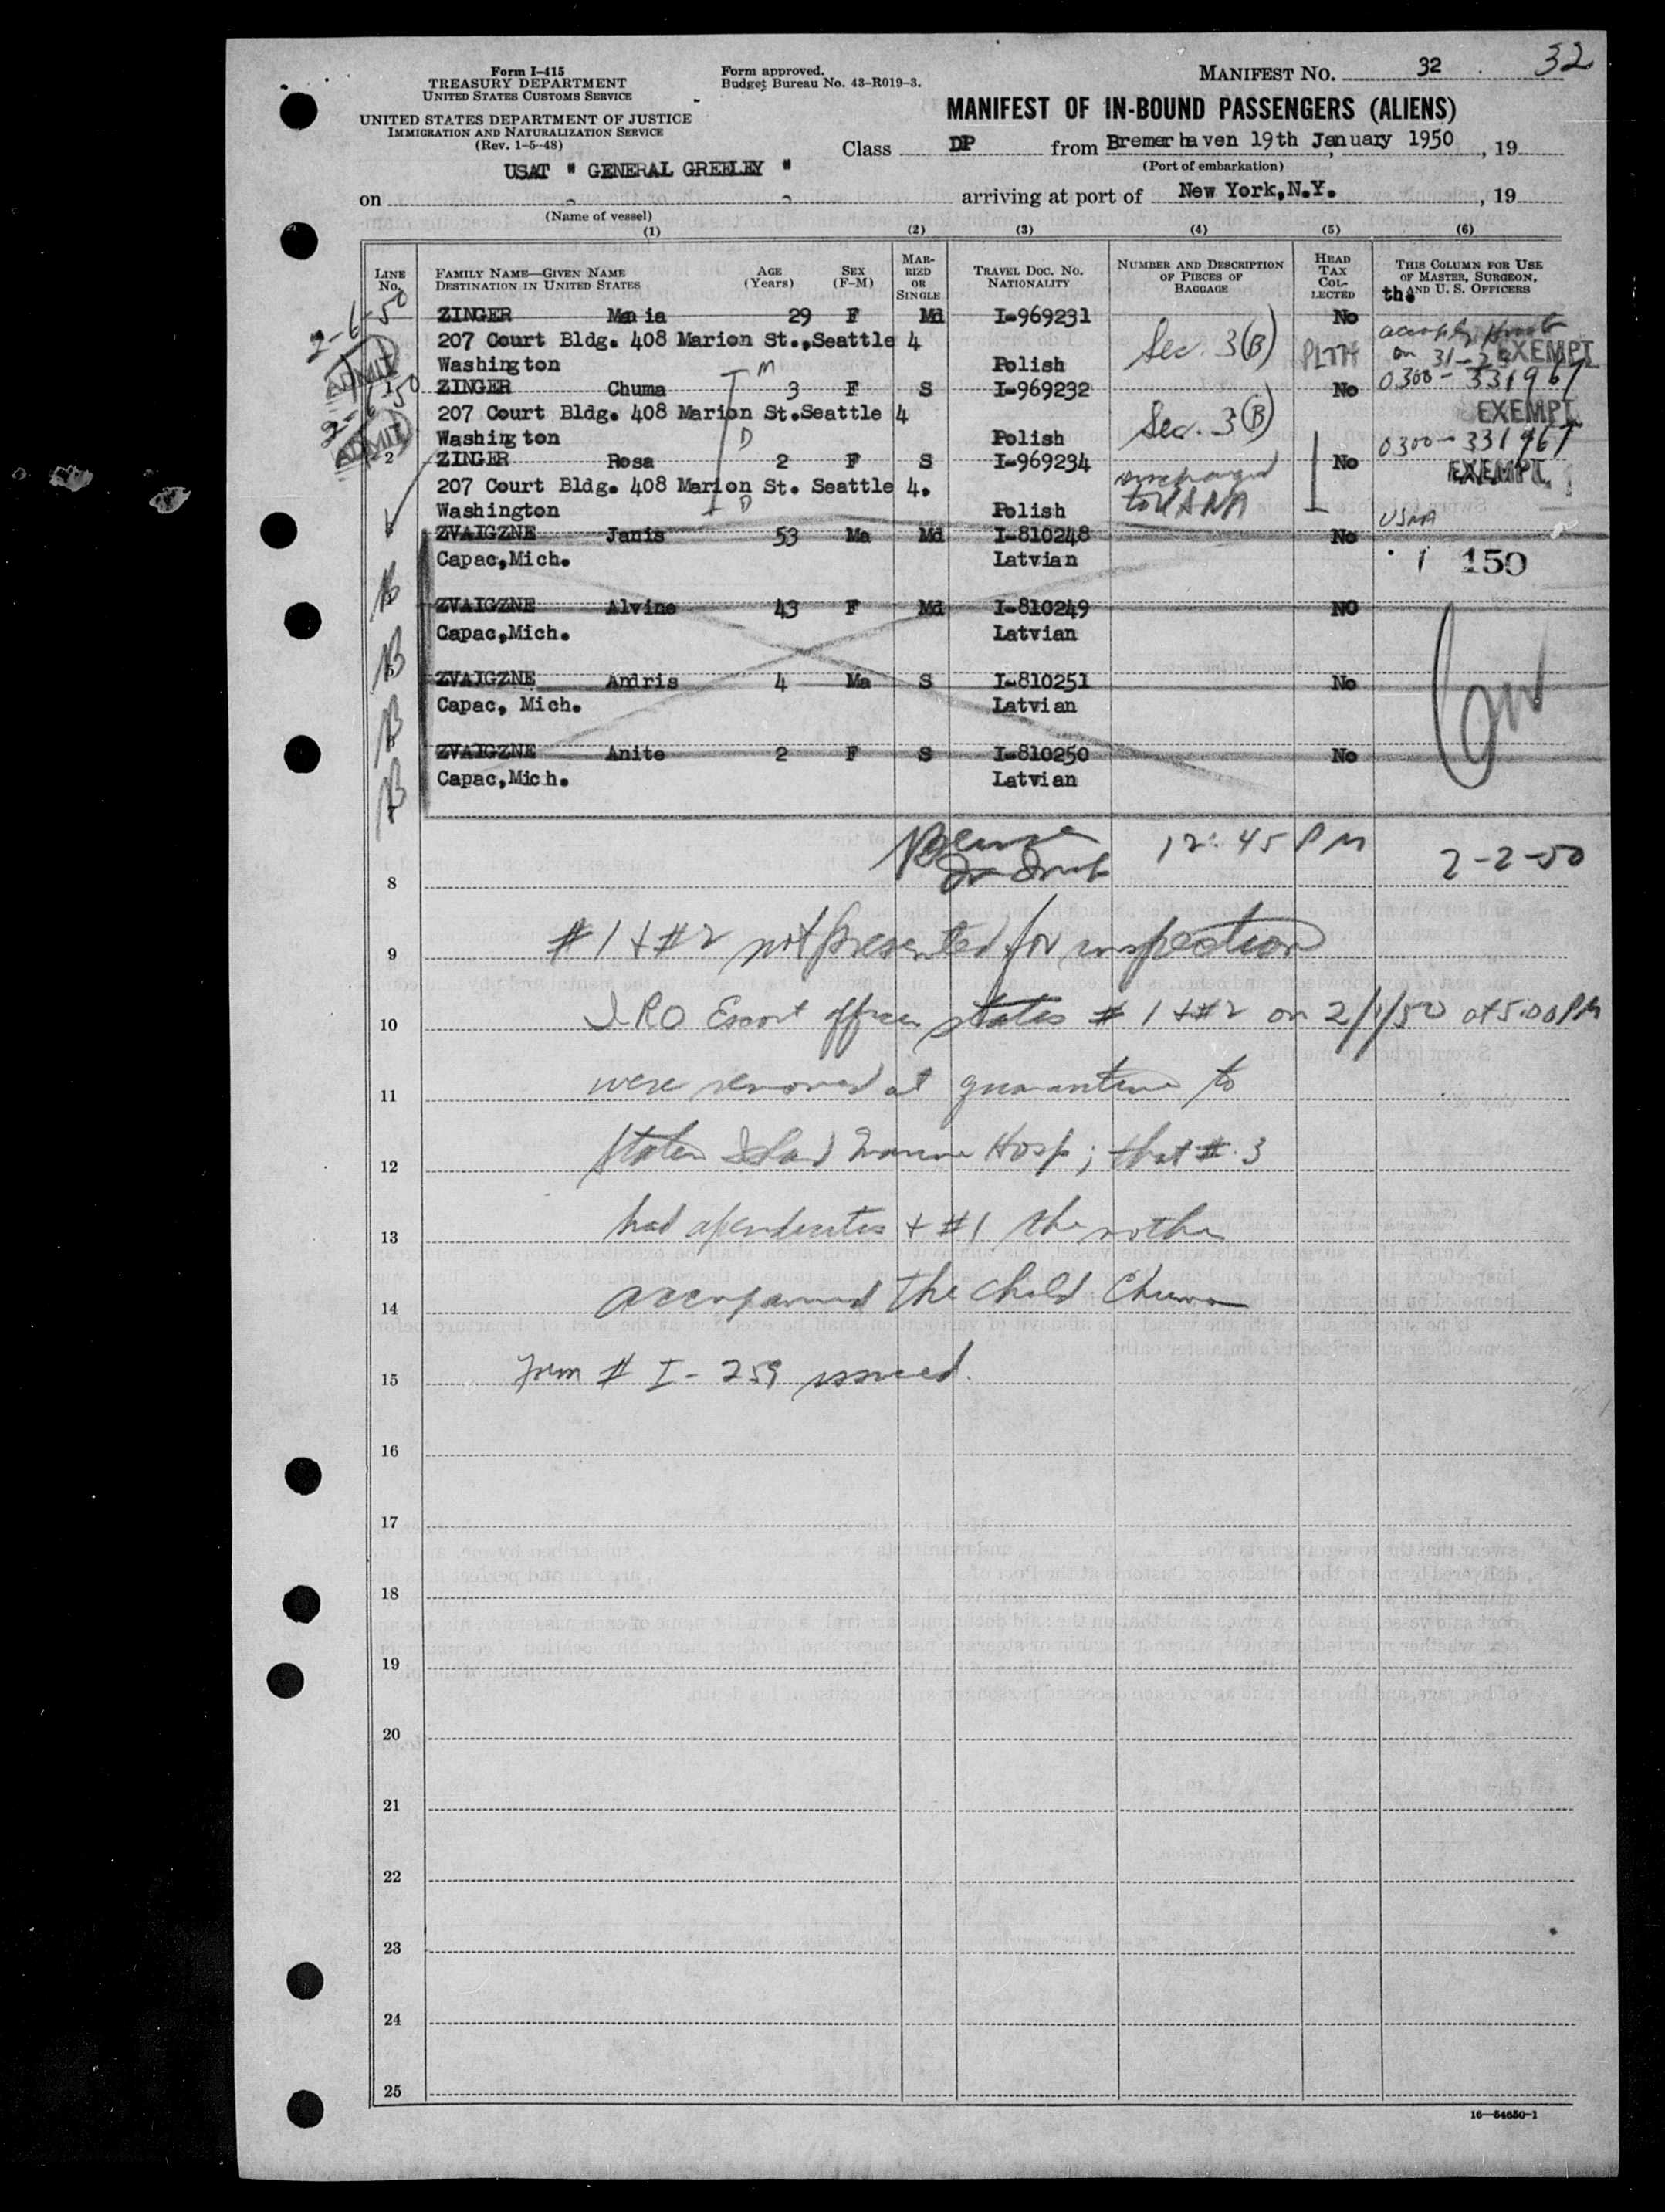 32
Form I-415
TREASURY DEPARTMENT
UNITED STATES CUSTOMS SERVICE
UNITED STATES DEPARTMENT OF JUSTICE
IMMIGRATION AND NATURALIZATION SERVICE
(Rev. 1-5-48)
Form approved.
Budget Bureau No. 43-R019-3.
MANIFEST NO. 32
MANIFEST OF IN-BOUND PASSENGERS (ALIENS)
Class DP from Bremerhaven 19th January 1950, 19
(Port of embarkation)
on USAT " GENERAL GREELEY " arriving at port of New York,N.Y., 19
(Name of vessel)
(1) (2) (3) (4) (5) (6)
LINE NO. FAMILY NAME—GIVEN NAME DESTINATION IN UNITED STATES AGE (Years) SEX (F-M) MARRIED OR SINGLE TRAVEL DOC. NO. NATIONALITY NUMBER AND DESCRIPTION OF PIECES OF BAGGAGE HEAD TAX COLLECTED THIS COLUMN FOR USE OF MASTER, SURGEON, AND U. S. OFFICERS
the
2-6-50 ADMIT
ZINGER Mania 29 F Md I-969231 No
207 Court Bldg. 408 Marion St.,Seattle 4 Sec. 3(B) on 31-23 EXEMPT
Washington M Polish 0300-331967
2-6-50 ADMIT
1 ZINGER Chuma 3 F S I-969232 No
207 Court Bldg. 408 Marion St.Seattle 4 Sec. 3(B) EXEMPT
Washington D Polish 0300-331967
2 ZINGER Rosa 2 F S I-969234 No EXEMPT
207 Court Bldg. 408 Marion St. Seattle 4. to USNA
Washington D Polish USNA
ZVAIGZNE Janis 53 Ma Md I-810248 No
Capac,Mich. Latvian 1 150
ZVAIGZNE Alvine 43 F Md I-810249 NO
Capac,Mich. Latvian
ZVAIGZNE Andris 4 Ma S I-810251 No
Capac, Mich. Latvian
ZVAIGZNE Anita 2 F S I-810250 No
Capac,Mich. Latvian
12:45 PM 2-2-50
8
9 #1 + #2 not presented for inspection
10 IRO Escort officer states #1 + #2 on 2/1/50 at 5:00 PM
11 were removed at quarantine to
12 Staten Island Marine Hosp; that #3
13 had apendicites + #1 the mother
14 accompanied the child Chuma
15 Form # I-259 issued.
16
17
18
19
20
21
22
23
24
25
16—54650-1